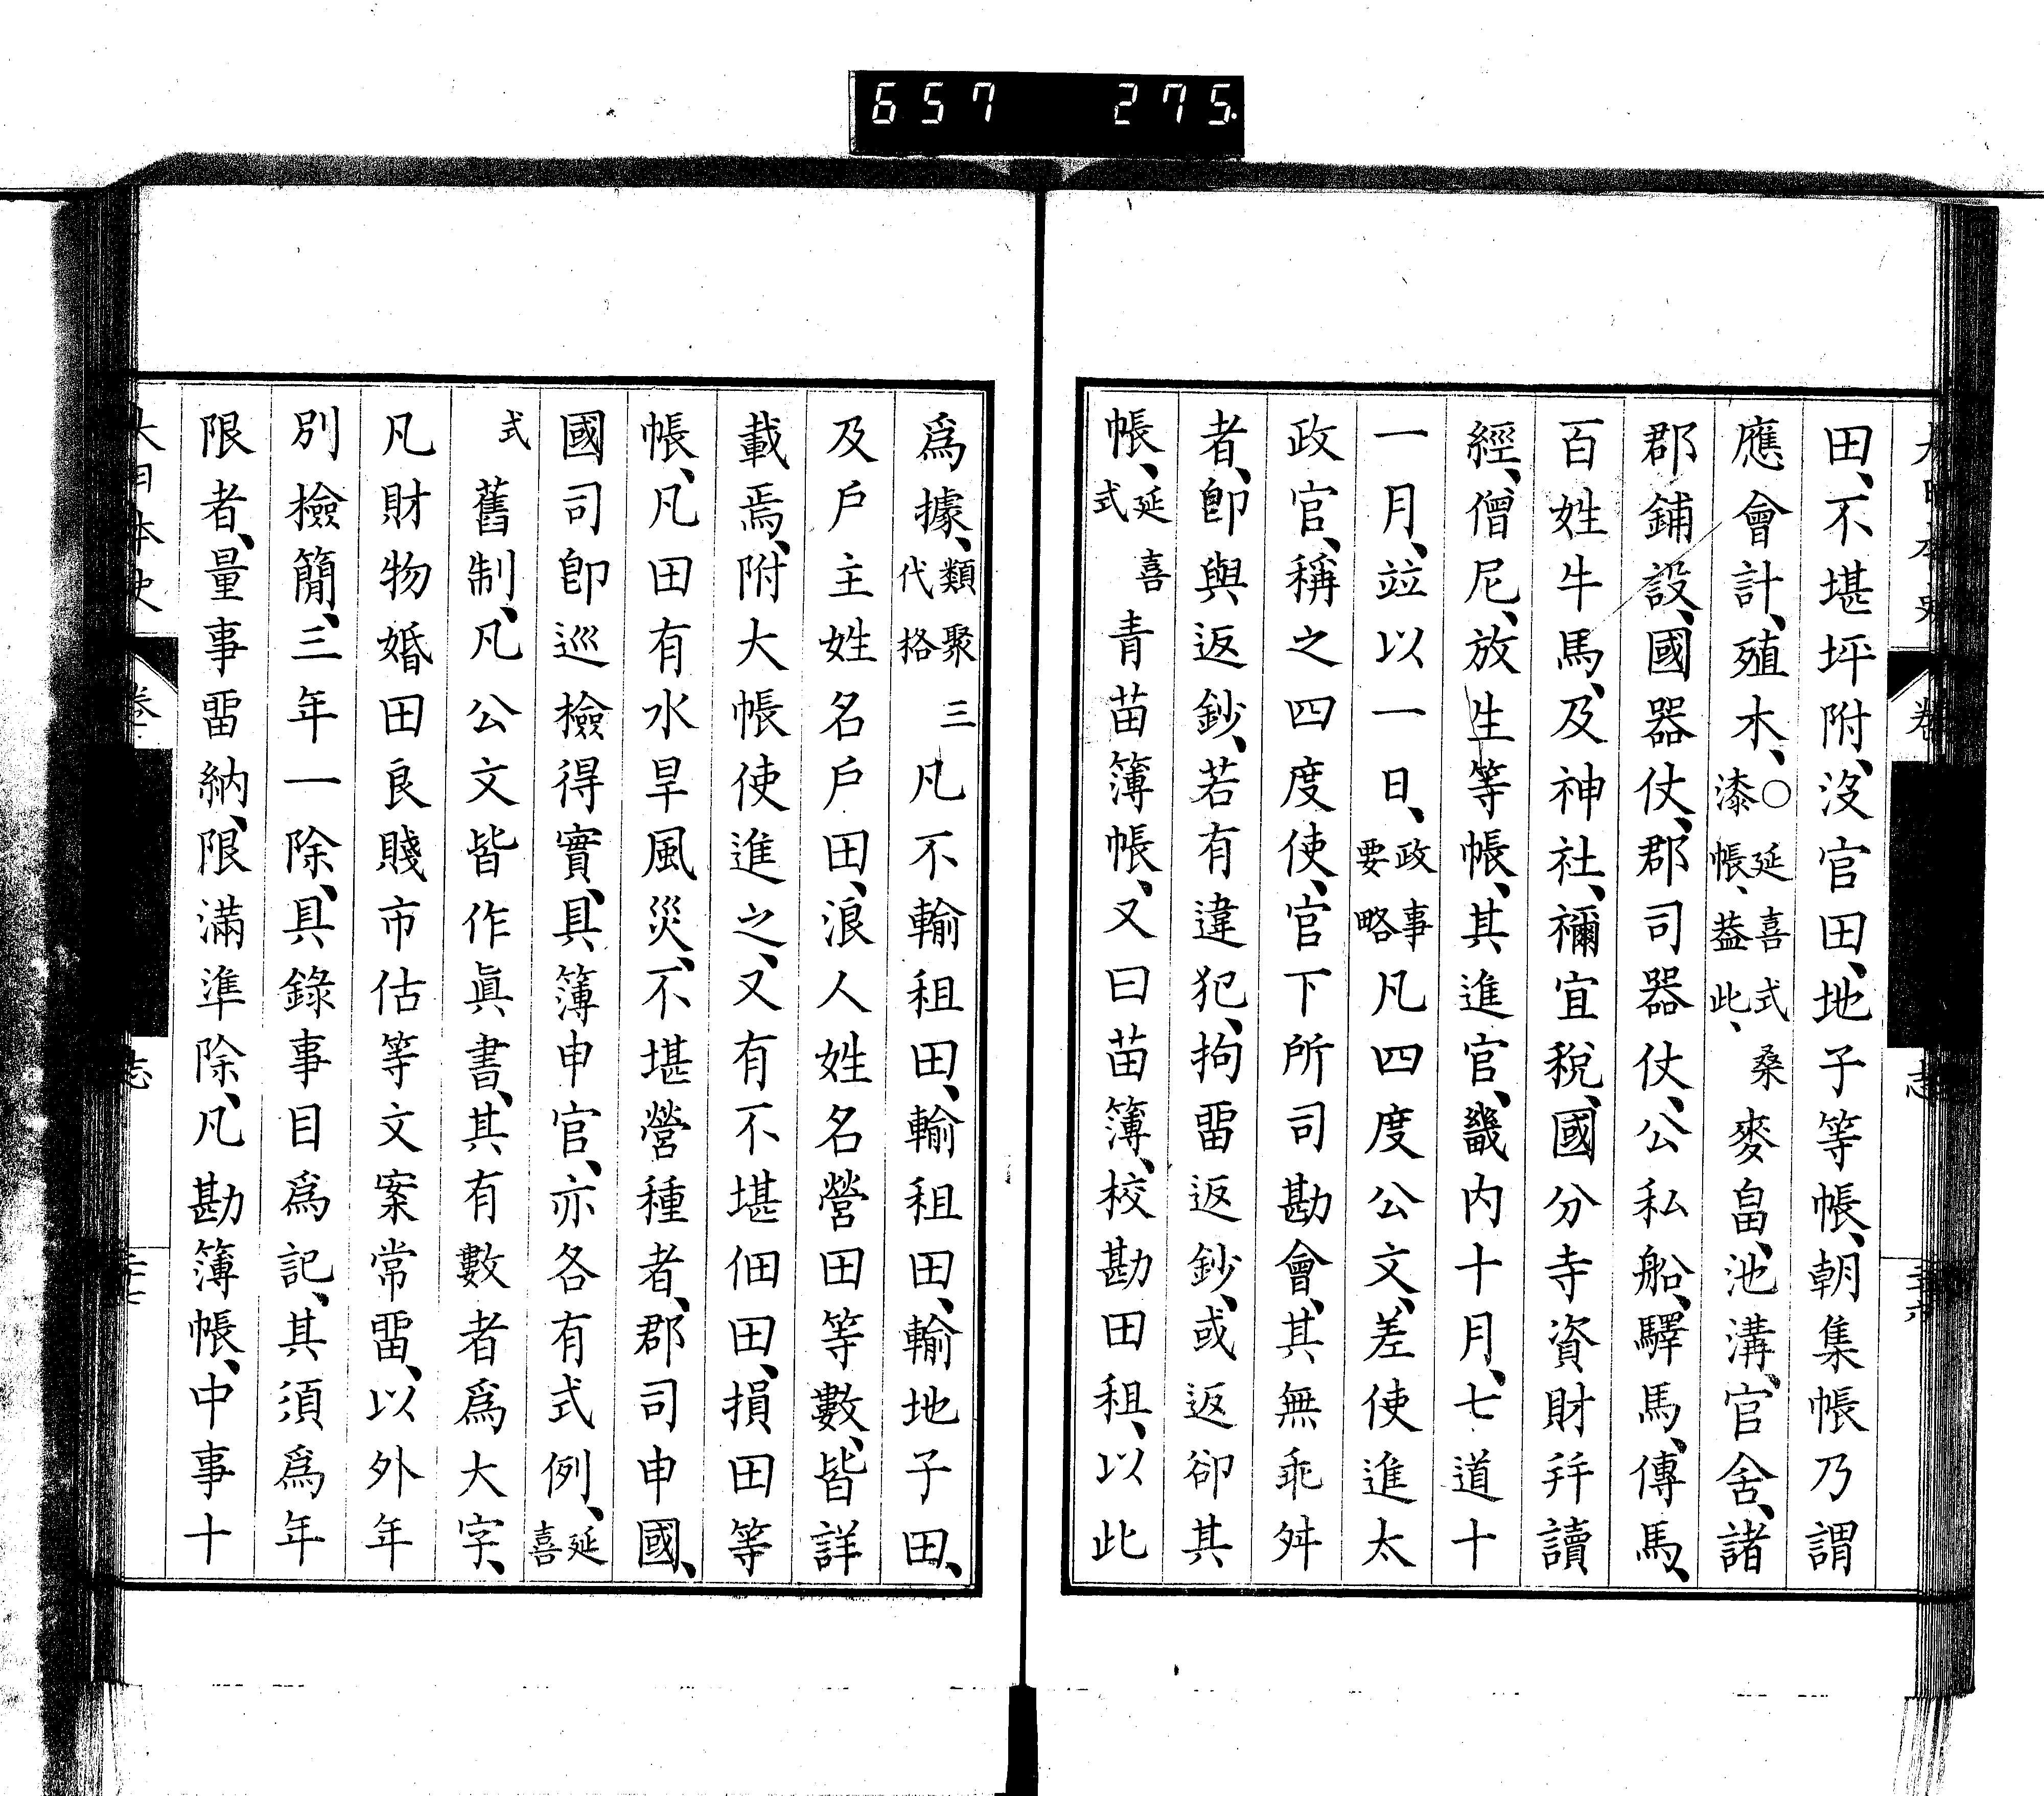 657 275
田、不堪坪附、沒官田、地子等帳、朝集帳乃謂
應會計、殖木、○延喜式桑漆帳、葢此、麥畠、池溝、官舍、諸
郡鋪設、國器仗、郡司器仗、公私船、驛馬、傳馬、
百姓牛馬、及神社、禰宜稅、國分寺資財幷讀
經、僧尼、放生等帳、其進官、畿内十月、七道十
一月、竝以一日、政事要略凡四度公文、差使進太
政官、稱之四度使、官下所司勘會、其無乖舛
者、卽與返鈔、若有違犯、拘畱返鈔、或返卻其
帳、延喜式靑苗簿帳、又曰苗簿、校勘田租、以此
爲據、類聚三代格凡不輸租田、輸租田、輸地子田、
及戶主姓名戶田、浪人姓名營田等數、皆詳
載焉、附大帳使進之、又有不堪佃田、損田等
帳、凡田有水旱風災、不堪營種者、郡司申國、
國司卽巡檢得實、具簿申官、亦各有式例、延喜
式舊制、凡公文皆作眞書、其有數者爲大字、
凡財物婚田良賤市估等文案常畱、以外年
別檢簡、三年一除、具錄事目爲記、其須爲年
限者、量事畱納、限滿準除、凡勘簿帳、中事十